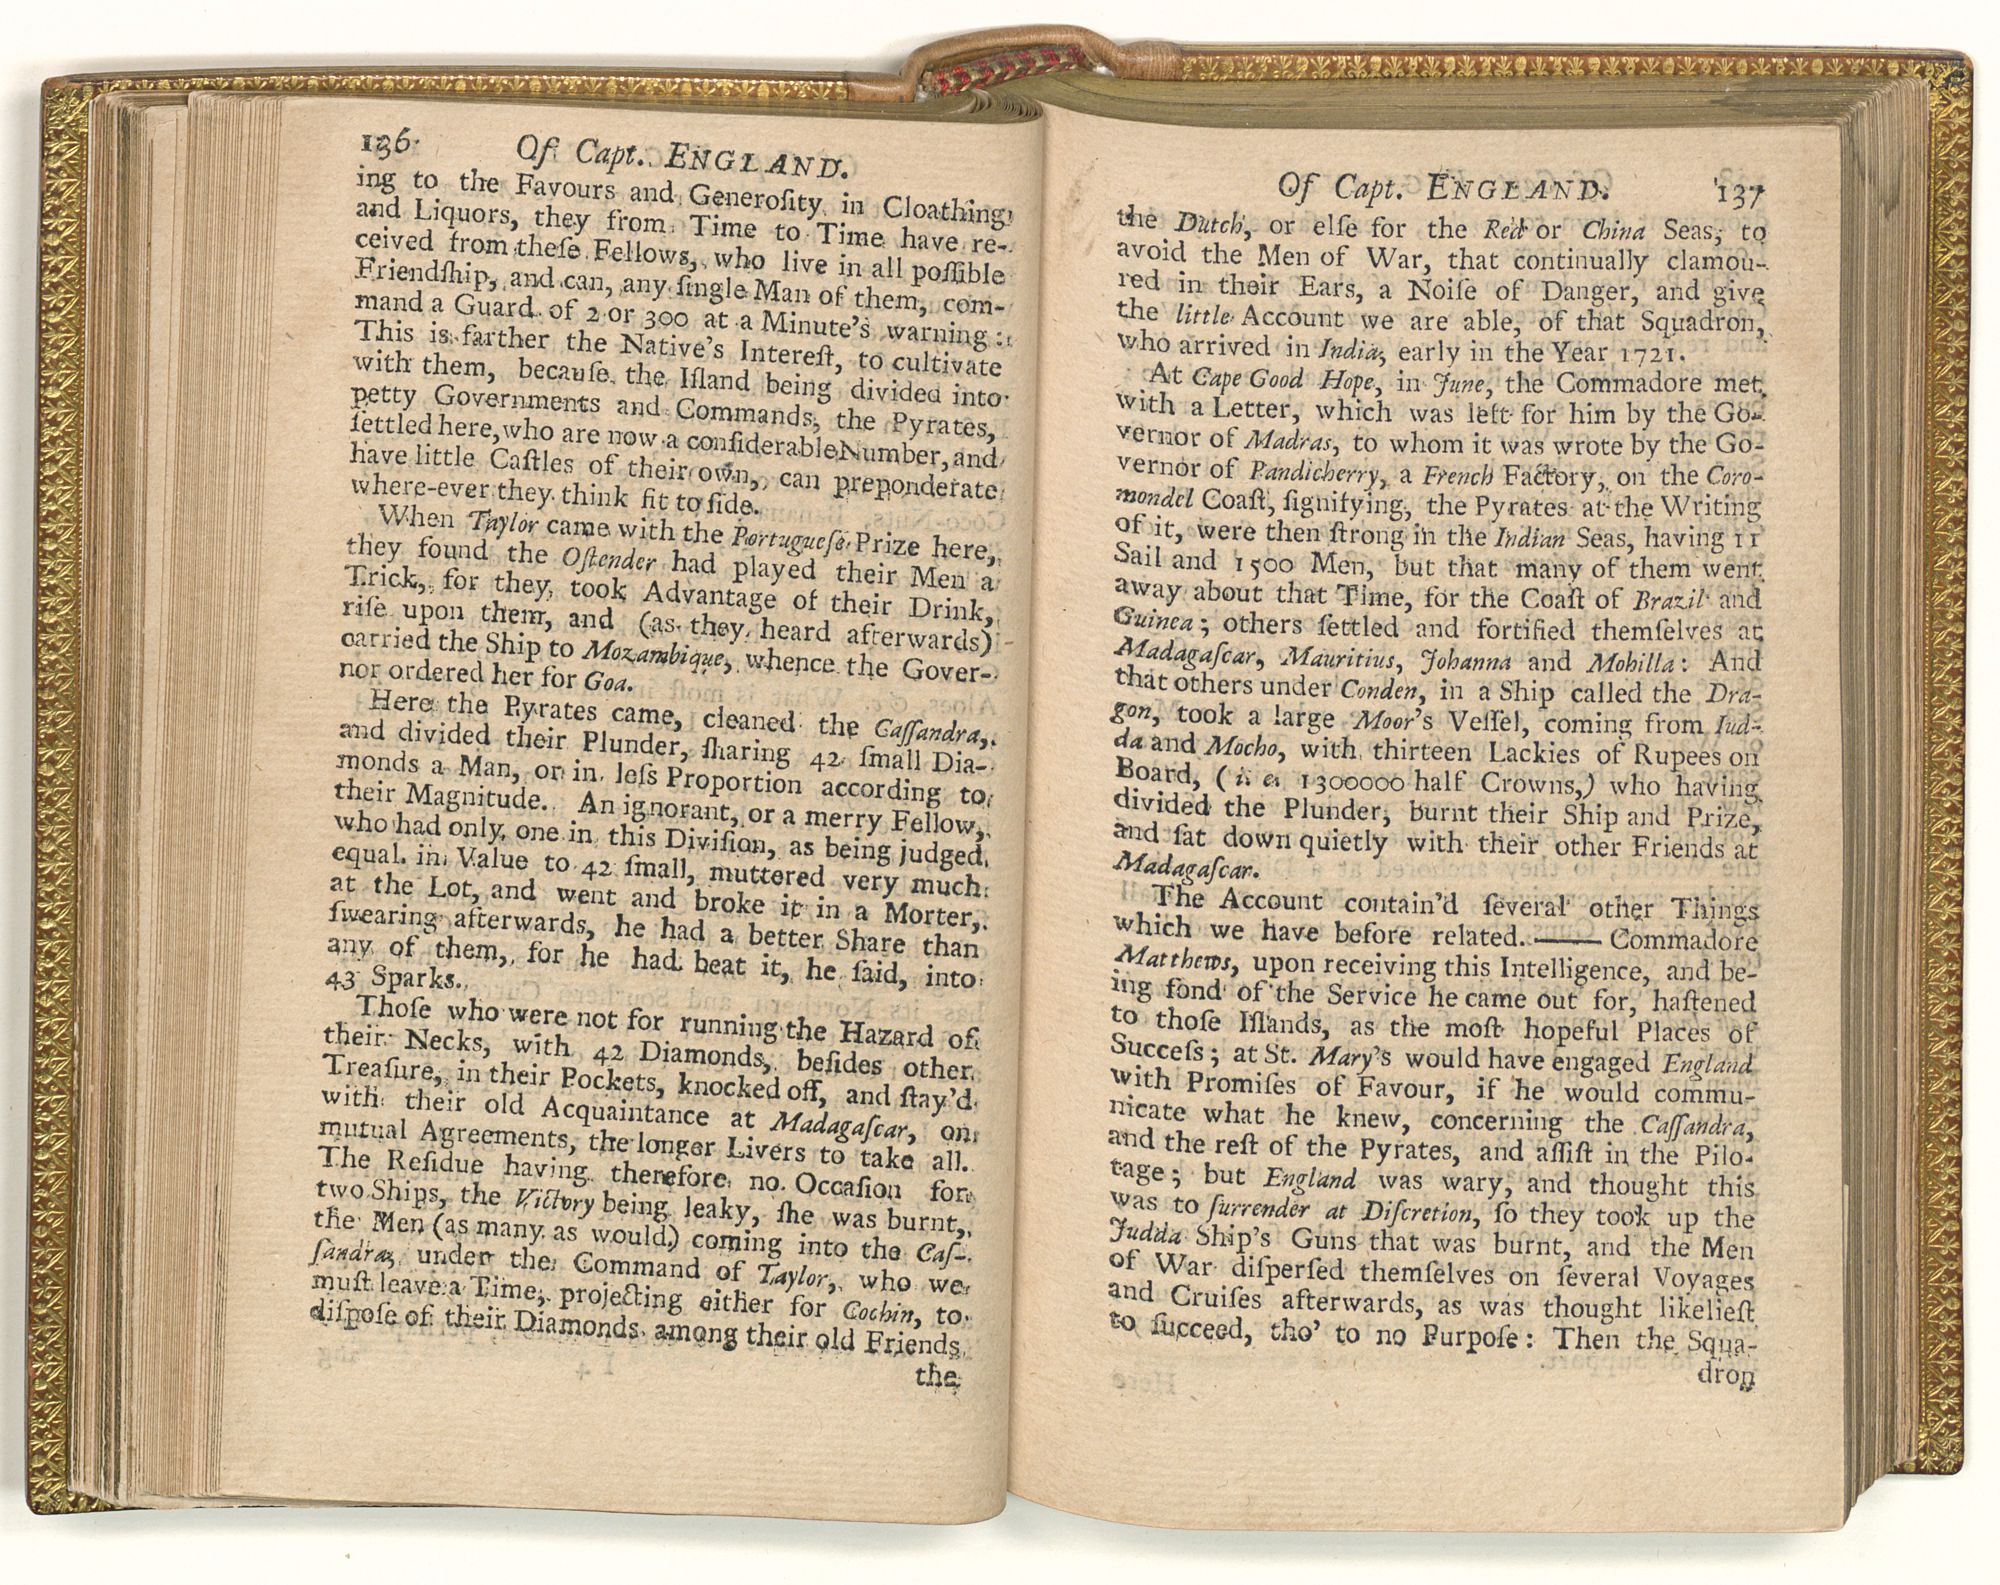 136 Of Capt. ENGLAND.
ing to the Favours and Generoſity in Cloathing
and Liquors, they from Time to Time have re-
ceived from theſe Fellows, who live in all poſſible
Friendſhip, and can, any ſingle Man of them, com-
mand a Guard of 2 or 300 at a Minute's warning:
This is farther the Native's Intereſt, to cultivate
with them, becauſe the Iſland being divided into
petty Governments and Commands, the Pyrates,
ſettled here, who are now a conſiderable Number, and
have little Caſtles of their own, can preponderate
where-ever they think fit to ſide.
When Taylor came with the Portugueſe Prize here,
they found the Oſtender had played their Men a
Trick, for they, took Advantage of their Drink,
riſe upon them, and (as they heard afterwards)
carried the Ship to Mozambique, whence the Gover-
nor ordered her for Goa.
Here the Pyrates came, cleaned the Caſſandra,
and divided their Plunder, ſharing 42 ſmall Dia-
monds a Man, or in leſs Proportion according to
their Magnitude. An ignorant, or a merry Fellow,
who had only one in this Diviſion, as being judged
equal in Value to 42 ſmall, muttered very much
at the Lot, and went and broke it in a Morter,
ſwearing afterwards, he had a better Share than
any of them, for he had beat it, he ſaid, into
43 Sparks.
Thoſe who were not for running the Hazard of
their Necks, with 42 Diamonds, beſides other
Treaſure, in their Pockets, knocked off, and ſtay'd
with their old Acquaintance at Madagaſcar, on
mutual Agreements, the longer Livers to take all.
The Reſidue having therefore no Occaſion for
two Ships, the Victory being leaky, ſhe was burnt,
the Men (as many as would) coming into the Caſ-
ſandra, under the Command of Taylor, who we
muſt leave a Time, projecting either for Cochin, to
diſpoſe of their Diamonds among their old Friends
the
Of Capt. ENGLAND. 137
the Dutch, or elſe for the Red or China Seas, to
avoid the Men of War, that continually clamou-
red in their Ears, a Noiſe of Danger, and give
the little Account we are able, of that Squadron,
who arrived in India, early in the Year 1721.
At Cape Good Hope, in June, the Commadore met
with a Letter, which was left for him by the Go-
vernor of Madras, to whom it was wrote by the Go-
vernor of Pandicherry, a French Factory, on the Coro-
mondel Coaſt, ſignifying, the Pyrates at the Writing
of it, were then ſtrong in the Indian Seas, having 11
Sail and 1500 Men, but that many of them went
away about that Time, for the Coaſt of Brazil and
Guinea; others ſettled and fortified themſelves at
Madagaſcar, Mauritius, Johanna and Mohilla: And
that others under Conden, in a Ship called the Dra-
gon, took a large Moor's Veſſel, coming from Jud-
da and Mocho, with thirteen Lackies of Rupees on
Board, (i. e. 1300000 half Crowns,) who having
divided the Plunder, burnt their Ship and Prize,
and ſat down quietly with their other Friends at
Madagaſcar.
The Account contain'd ſeveral other Things
which we have before related.—— Commadore
Matthews, upon receiving this Intelligence, and be-
ing fond of the Service he came out for, haſtened
to thoſe Iſlands, as the moſt hopeful Places of
Succeſs; at St. Mary's would have engaged England
with Promiſes of Favour, if he would commu-
nicate what he knew, concerning the Caſſandra,
and the reſt of the Pyrates, and aſſiſt in the Pilo-
tage; but England was wary, and thought this
was to ſurrender at Diſcretion, ſo they took up the
Judda Ship's Guns that was burnt, and the Men
of War diſperſed themſelves on ſeveral Voyages
and Cruiſes afterwards, as was thought likelieſt
to ſucceed, tho' to no Purpoſe: Then the Squa-
dron